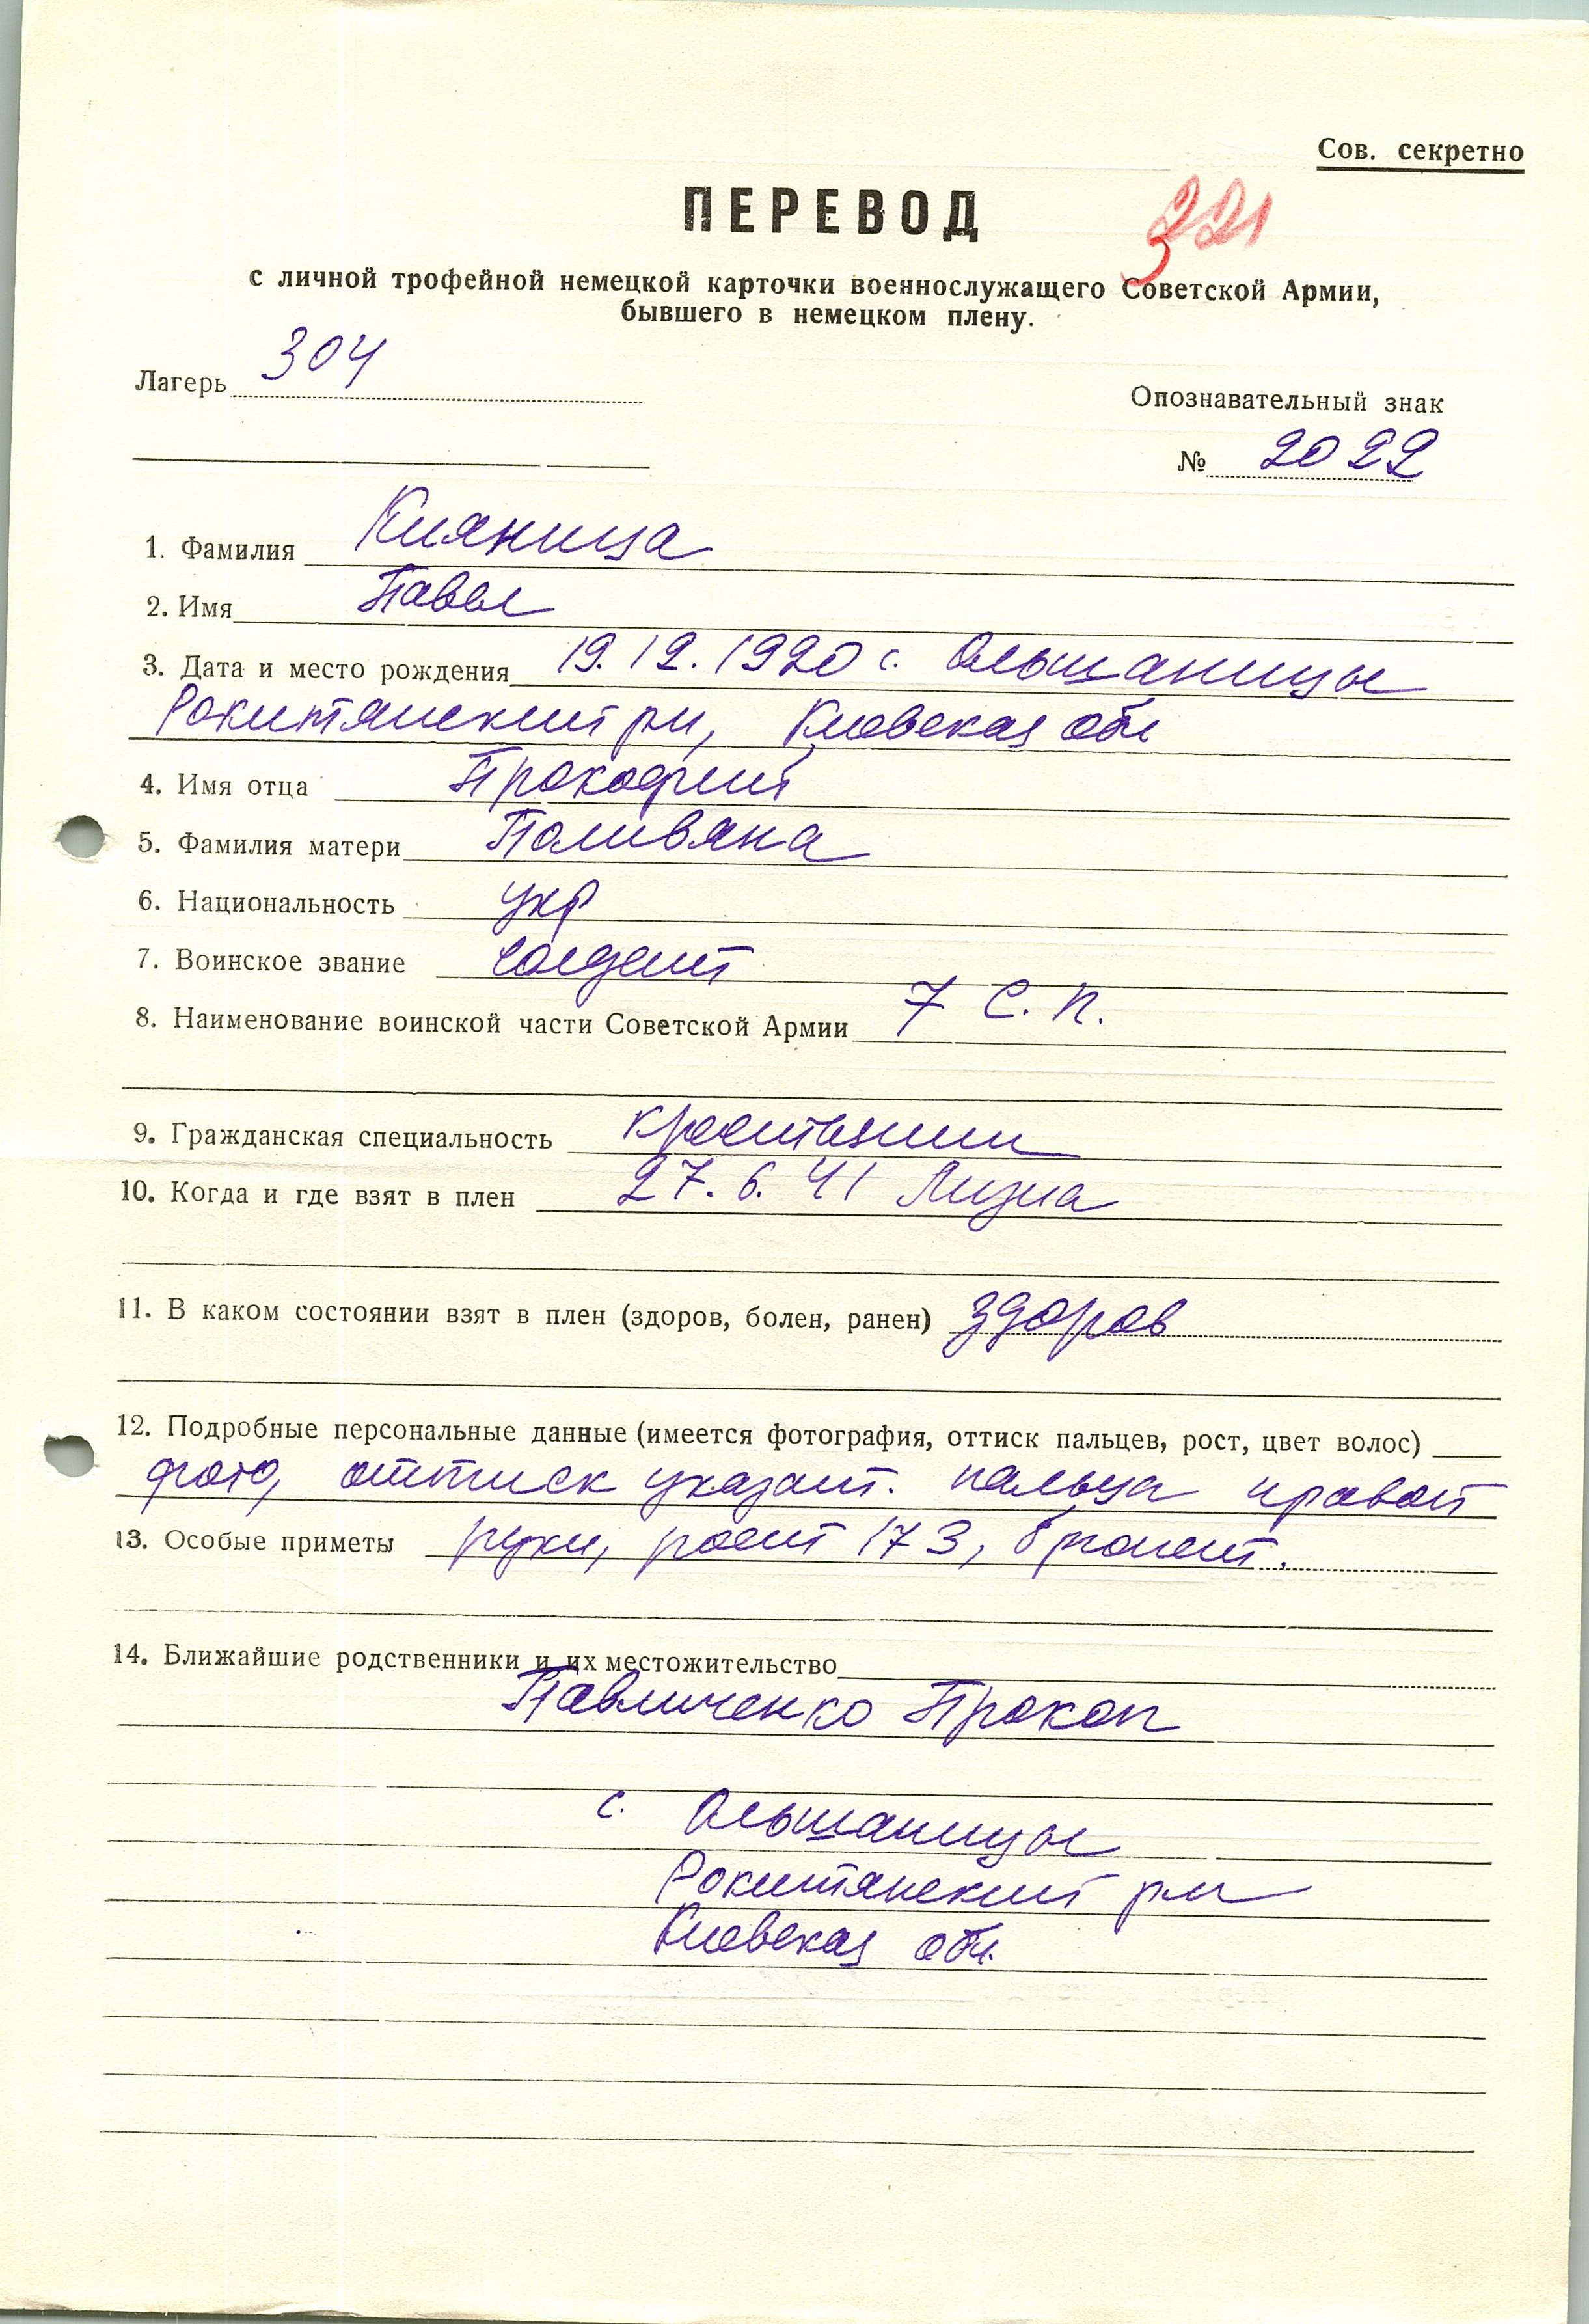 Сов. секретно
ПЕРЕВОД
321
с личной трофейной немецкой карточки военнослужащего Советской Армии,
бывшего в немецком плену.
Лагерь 304
Опознавательный знак
№ 2022
1. Фамилия Кияница
2. Имя Павел
3. Дата и место рождения 19.12.1920 с. Ольшаницы
Рокитянский рн, Киевская обл
4. Имя отца Прокофий
5. Фамилия матери Поливяна
6. Национальность укр
7. Воинское звание солдат
8. Наименование воинской части Советской Армии 7 с. п.
9. Гражданская специальность крестьянин
10. Когда и где взят в плен 27.6.41
11. В каком состоянии взят в плен (здоров, болен, ранен) здоров
12. Подробные персональные данные (имеется фотография, оттиск пальцев, рост, цвет волос)
фото, оттиск указат. пальца правой
13. Особые приметы руки, рост 173,
14. Ближайшие родственники и их местожительство
Павличенко Прокоп
с. Ольшаницы
Рокитянский рн
Киевская обл.